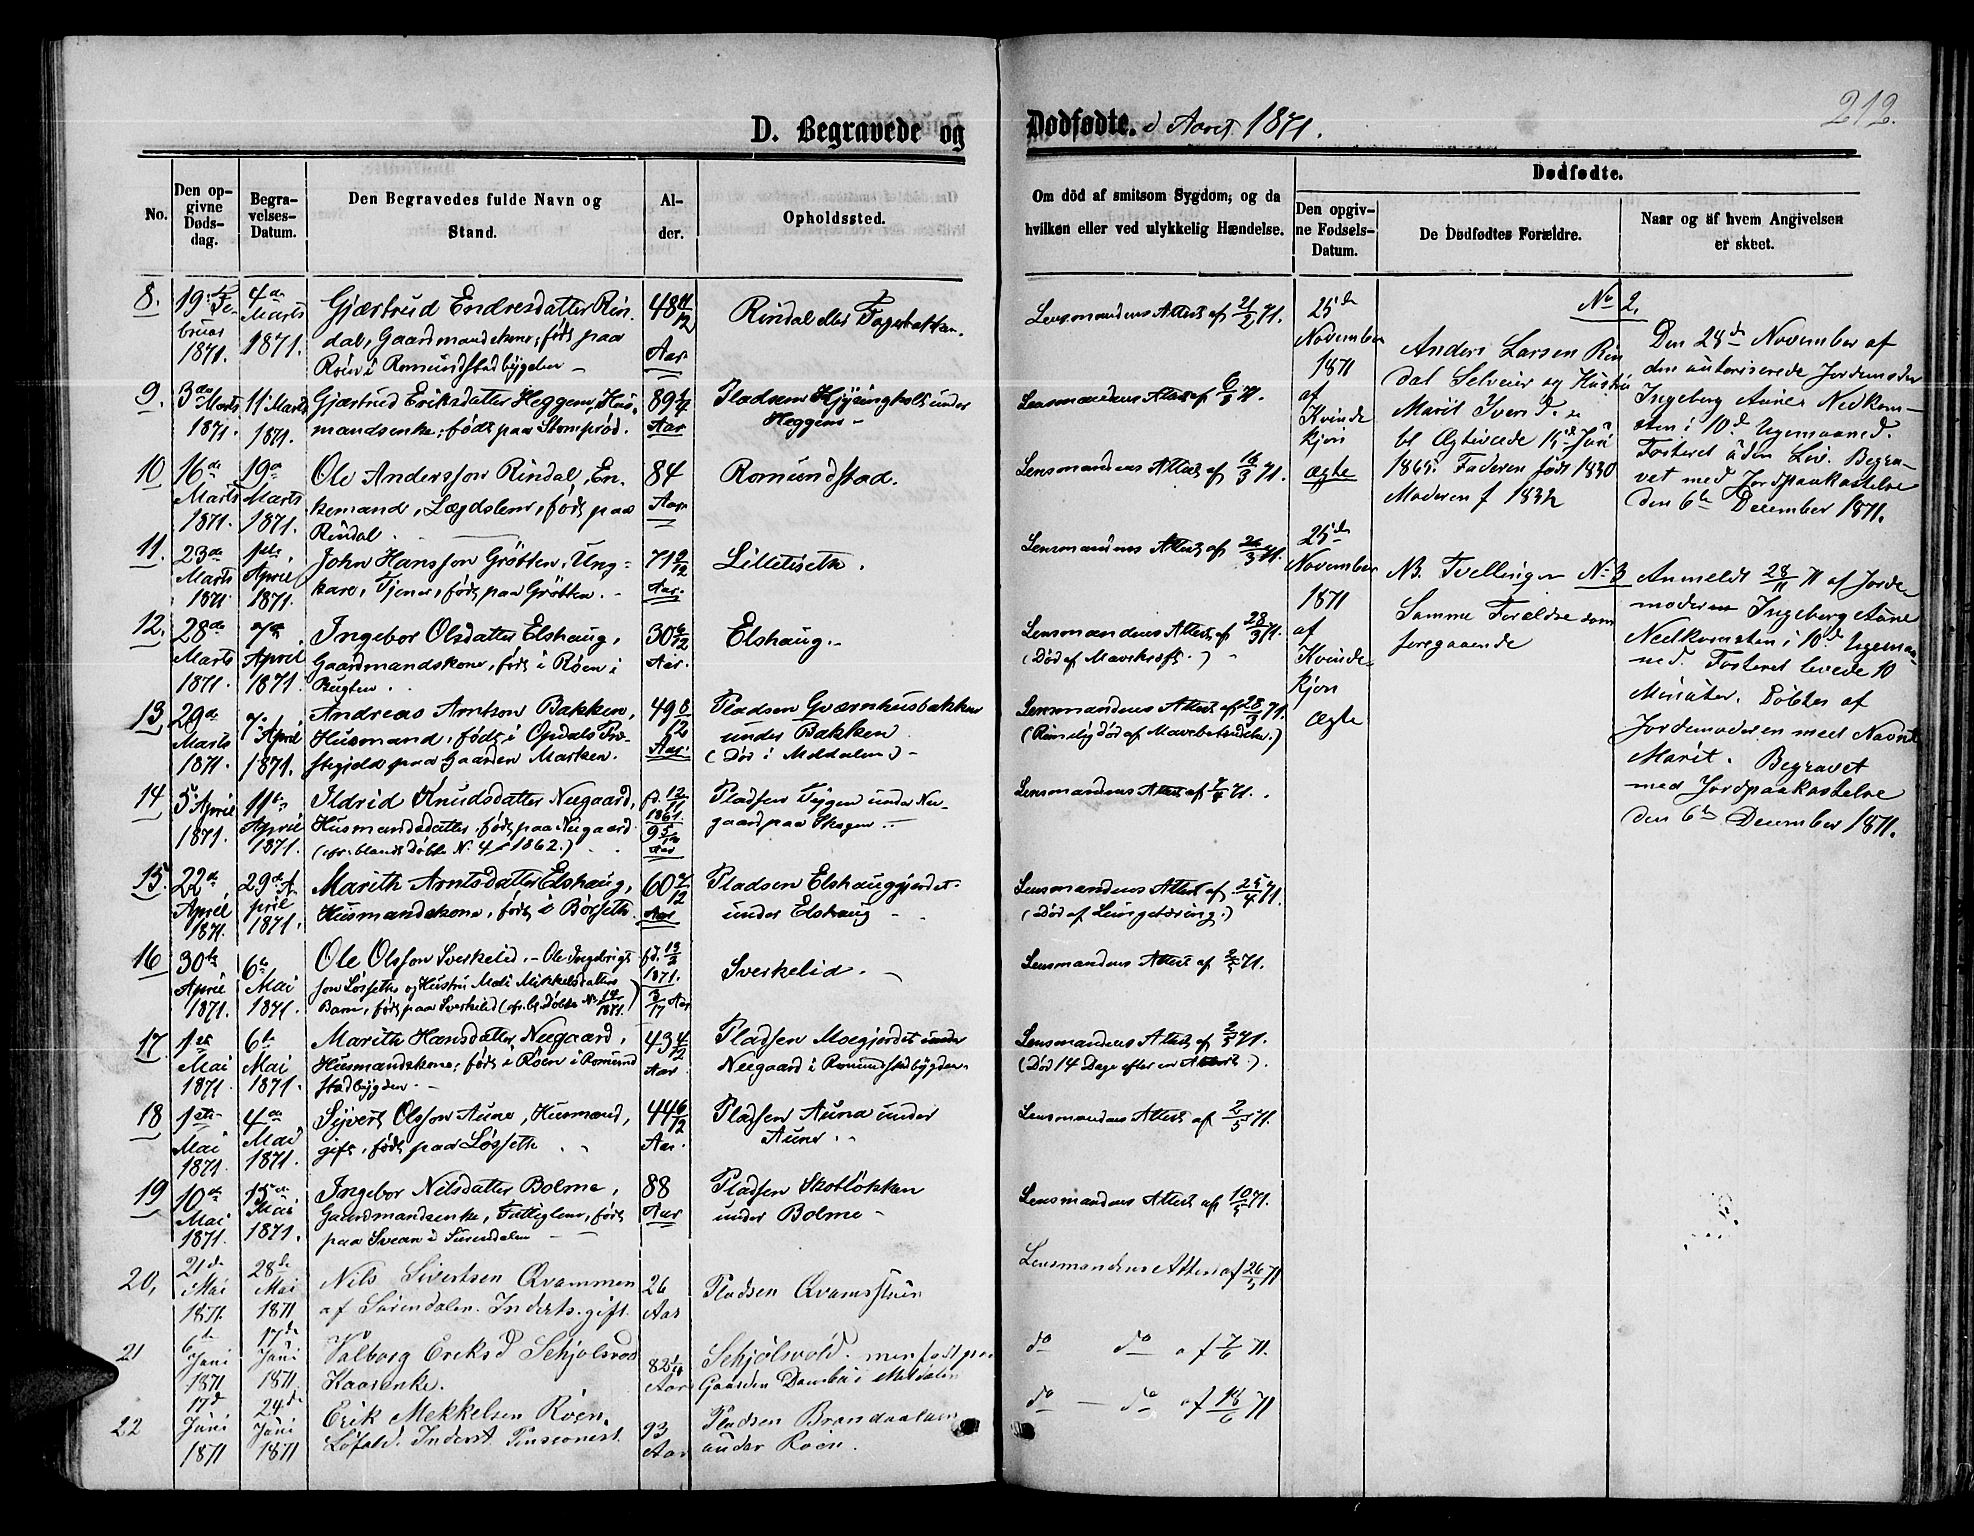 212.
D. Begravede og Dødfødte. i Aaret 1871.
No.
Den opgivne Dødsdag.
Begravelses-Datum.
Den Begravedes fulde Navn og Stand.
Alder.
Opholdssted.
Om död af smitsom Sygdom, og da hvilken eller ved ulykkelig Hændelse.
Dødfødte.
Den opgivne Fødsels-Datum.
De Dødfødtes Forældre.
Naar og af hvem Angivelsen er skeet.
8.
19. Februar 1871.
4de Marts 1871.
Gjertrud Endresdatter Rindal, Gaardmandskone, født paa
Røen i Romundstadbygden
48 11/12 Aar
Rindal eller
Lensmandens Attest af 21/2 71.
9.
3de Marts 1871.
11 Marts 1871.
Gjertrud Eriksdatter Heggem, Husmandsenke, født paa Stomprød.
89 Aar
Pladsen under
Heggem
Lensmandens Attest af 6/3 71.
10
16de Marts 1871.
19de Marts 1871.
Ole Andersson Rindal, Enkemand, Lægdslem, født paa
Rindal.
84 Aar
Romundstad.
Lensmandens Attest af 16/3 71.
11.
23de Marts 1871
1ste April 1871.
John Hansson Grøtten, Ungkarl, Tjener, født paa Grøtten.
71 2/12 Aar.
Lilletiseth.
Lensmandens Attest af 24/3 71.
12.
28de Marts 1871
7de April 1871.
Ingebor Olsdatter Elshaug,
Gaardmandskone, født i Røen i
Bugten.
30 6/12 Aar.
Elshaug.
Lensmandens Attest af 28/3 71.
(Død af Mavekræft.)
13.
29de Marts 1871.
7de April 1871.
Andreas Arntson Bakken,
Husmand, født i Opdals Præstegjeld paa Gaarden Marken.
49 8/12 Aar.
Pladsen Qværnhusbakken
under Bakken
(Død i Meldalen)
Lensmandens Attest af 28/3 71.
(Rimelig død af Mavebetændelse.)
14
5te April 1871.
11te April 1871.
Ildrid Knudsdatter Neegaard,
Husmandsdatter, født paa Neegaard.
(cfr. blandt Døbte N. 4 1862.)
fd. 12/11 1861.
9 5/12 Aar
Pladsen under Neegaard paa Skogen
Lensmandens Attest af 7/4 71.
15.
22de April 1871.
29de April 1871.
Marith Arntsdatter Elshaug,
Husmandskone, født i Børseth.
60 7/12 Aar.
Pladsen Elshaugjerdet
under Elshaug
Lensmandens Attest af 25/4 71.
(Død af Lungetæring.)
16
30te April 1871.
6te Mai 1871.
Ole Olsson Sverkelid. Ole Ingebrigtson Løsseth og Hustru Mali Mikkelsdatters
Barn, født paa Sverkelid (cfr. bl. Døbte N. 14 1871.)
fd. 13/2 1871.
Sverkelid.
Lensmandens Attest af 2/5 71.
17.
1ste Mai 1871
6te Mai 1871.
Marith Hansdatter Neegaard,
Husmandskone, født i Røen i Romundstadbygden.
43 4/12 Aar.
Pladsen Moegjerdet under
Neegaard i Romundstadbygden
Lensmandens Attest af 2/5 71.
(Død 14 Dage efter en Abort.)
18
1ste Mai 1871.
4de Mai 1871.
Syvert Olsson Aune, Husmand,
gift, født paa Løsseth
44 6/12 Aar.
Pladsen Auna under
Aune.
Lensmandens Attest af 2/5 71.
19
10de Mai 1871.
15de Mai 1871.
Ingebor Nilsdatter Bolme,
Gaardmandsenke, Fattiglem, født
paa Svean i Surendalen
88 Aar
Pladsen Skotløkken
under Bolme
Lensmandens Attest af 10/5 71.
20,
21de Mai 1871
28de Mai 1871
Nils Sivertsen Qvammen
af Sørendalen. Inderst. gift.
26 Aar
Pladsen Qvamsstuen
Lensmandens Attest af 26/5 71
21
6te Juni 1871
17de Juni 1871
Valborg Eriks D. Schjølsvold
Kaarenke.
82 Aar
Schjølsvold. men født paa
Gaarden i Meldalen
do — do af 7/6 71.
22
17d Juni 1871
24de Juni 1871
Erik Mekkelsen Røen,
Løfald. Inderst. Pensionist.
93 Aar
Pladsen
under Røen.
do — do af 18/6 71
No 2.
25de November 1871
af Kvindekjøn
ægte
Anders Larsen Rindal Selveier og Hustru
Marit Ivers D.
bl. Ægteviede 15de Juni
1865. Faderen født 1830
Moderen f 1832
Den 28de November af
den autoriserede Jordemoder
Ingeborg Aune. Nedkomsten i 10de Ugemaaned.
Fosteret uden Liv. Begravet med Jordpaakastelse
den 6te December 1871.
25de November 1871
af Kvindekjøn
Ægte
NB. Tvellinger No 3
Samme Forældre som
foregaaende
Anmeldt 28/11 71 af Jordemoderen Ingeborg Aune
Nedkomsten i 10de Ugemaaned. Fosteret levede 10
Minuter. Døbtes af
Jordemoderen med Navnet
Marit. Begravet
med Jordpaakastelse
den 6te December 1871.